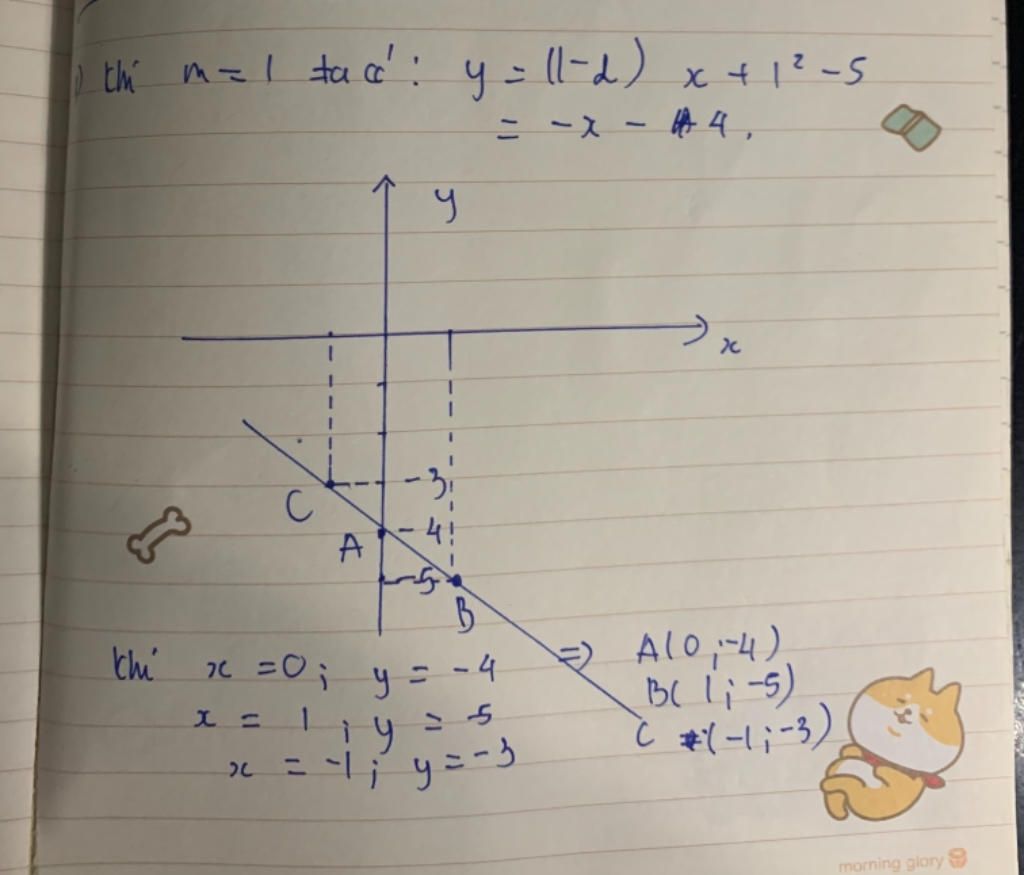 Khi m = 1 ta có: y = (1-2) x + 1² - 5
= -x - 4.
y
x
-3
C
-4
A
-5
B
Khi x = 0; y = -4
x = 1; y = -5
x = -1; y = -3
=> A(0;-4)
B(1;-5)
C (-1;-3)
morning glory